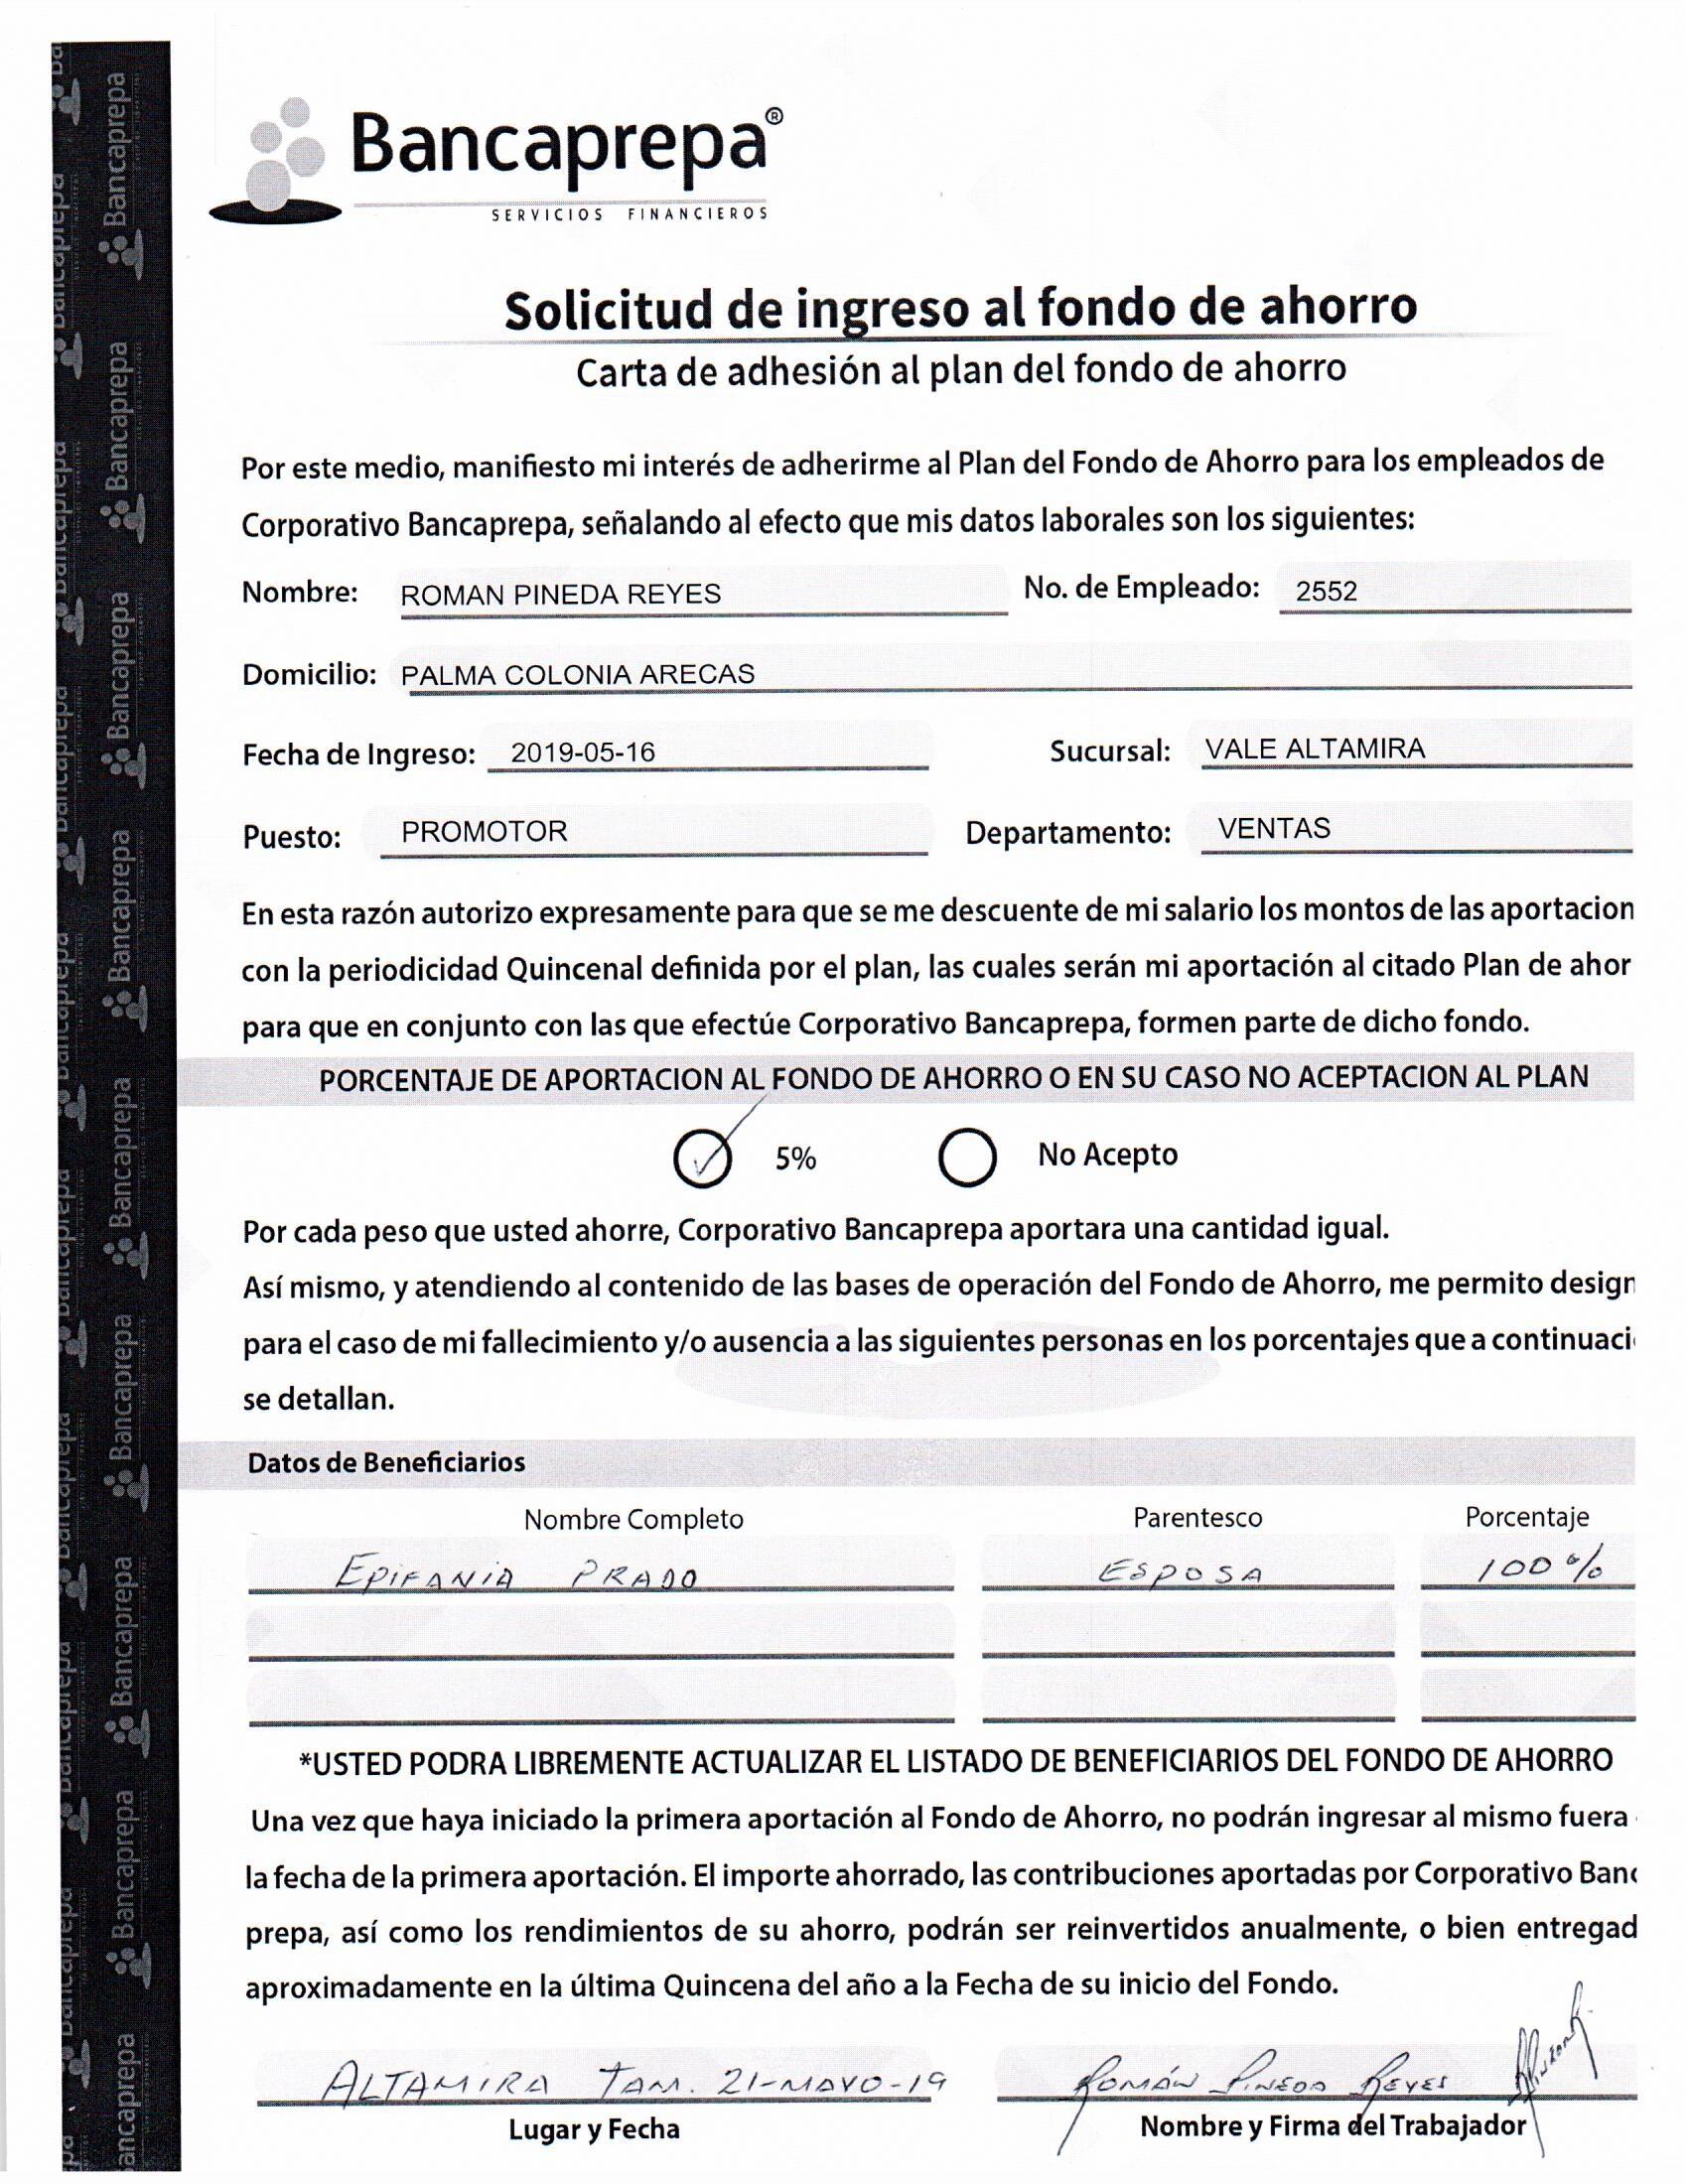 Bancaprepa®
SERVICIOS FINANCIEROS
Solicitud de ingreso al fondo de ahorro
Carta de adhesión al plan del fondo de ahorro
Por este medio, manifiesto mi interés de adherirme al Plan del Fondo de Ahorro para los empleados de
Corporativo Bancaprepa, señalando al efecto que mis datos laborales son los siguientes:
Nombre: ROMAN PINEDA REYES No. de Empleado: 2552
Domicilio: PALMA COLONIA ARECAS
Fecha de Ingreso: 2019-05-16 Sucursal: VALE ALTAMIRA
Puesto: PROMOTOR Departamento: VENTAS
En esta razón autorizo expresamente para que se me descuente de mi salario los montos de las aportacion
con la periodicidad Quincenal definida por el plan, las cuales serán mi aportación al citado Plan de ahor
para que en conjunto con las que efectúe Corporativo Bancaprepa, formen parte de dicho fondo.
PORCENTAJE DE APORTACION AL FONDO DE AHORRO O EN SU CASO NO ACEPTACION AL PLAN
5% No Acepto
Por cada peso que usted ahorre, Corporativo Bancaprepa aportara una cantidad igual.
Así mismo, y atendiendo al contenido de las bases de operación del Fondo de Ahorro, me permito design
para el caso de mi fallecimiento y/o ausencia a las siguientes personas en los porcentajes que a continuaci
se detallan.
Datos de Beneficiarios
Nombre Completo Parentesco Porcentaje
EPIFANIA PRADO ESPOSA 100%
*USTED PODRA LIBREMENTE ACTUALIZAR EL LISTADO DE BENEFICIARIOS DEL FONDO DE AHORRO
Una vez que haya iniciado la primera aportación al Fondo de Ahorro, no podrán ingresar al mismo fuera
la fecha de la primera aportación. El importe ahorrado, las contribuciones aportadas por Corporativo Banc
prepa, así como los rendimientos de su ahorro, podrán ser reinvertidos anualmente, o bien entregad
aproximadamente en la última Quincena del año a la Fecha de su inicio del Fondo.
ALTAMIRA TAM. 21-MAYO-19 ROMÁN PINEDA REYES
Lugar y Fecha Nombre y Firma del Trabajador